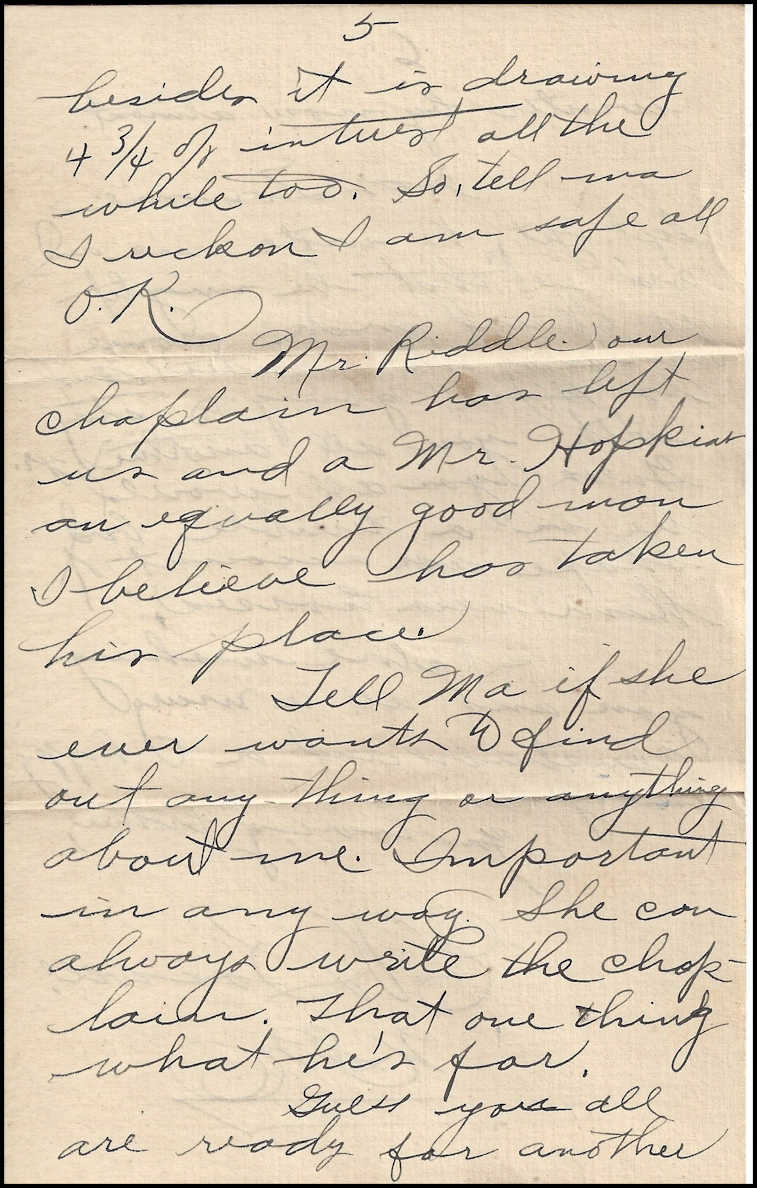 5
besides it is drawing
4 3/4 % intrest all the
while too. So, tell ma
I reckon I am safe all
O.K.
Mr. Riddle our
chaplain has left
us and a Mr. Hopkins
an equally good man
I believe has taken
his place.
Tell Ma if she
ever wants to find
out any thing or anything
about me. Important
in any way. She can
always write the chap-
lain. That one thing
what he's for.
Guess you all
are ready for another